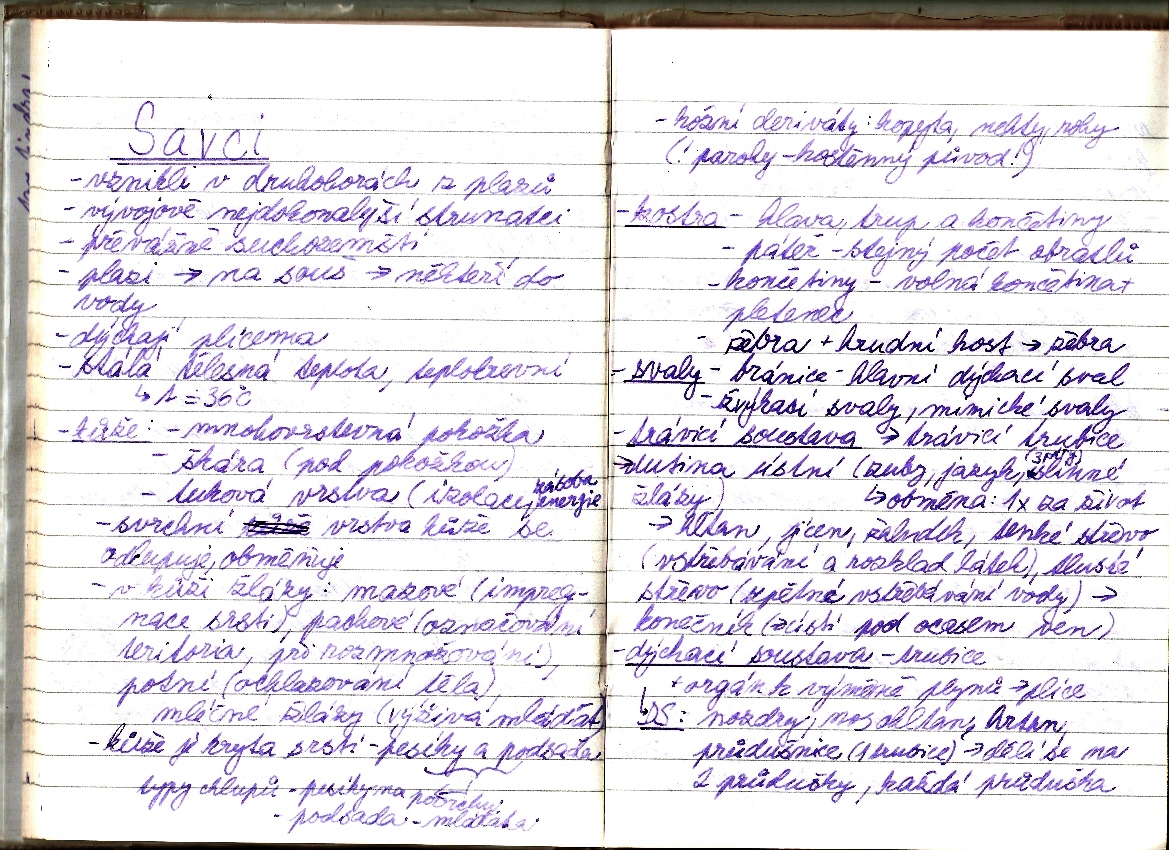 Savci
- vznikli v druhohorách z plazů
- vývojově nejdokonalejší strunatci
- převážně suchozemští
- plazi → na souš → někteří do
vody
- dýchají plícema
- stálá tělesná teplota, teplokrevní
↳ t = 36°C
- kůže: - mnohovrstevná pokožka
- škára (pod pokožkou)
- tuková vrstva (izolace, zásoba energie
- svrchní vrstva kůže se
odlupuje, obměňuje
- v kůži žlázy: mazové (impreg-
nace srsti), pachové (označování
teritoria, při rozmnožování),
potní (ochlazování těla),
mléčné žlázy (výživa mláďat)
- kůže je kryta srstí - pesíky a podsada
typy chlupů - pesíky na povrchu
- podsada -
- kožní deriváty: kopyta, nehty, rohy
(! parohy - kostěnný původ!)
- kostra - hlava, trup a končetiny
- páteř - stejný počet obratlů
- končetiny - volná končetina +
pletenec
- žebra + hrudní kost → žebra
- svaly - bránice - hlavní dýchací sval
- žvýkací svaly, mimické svaly
- trávicí soustava → trávicí trubice
→ dutina ústní (zuby, jazyk, slinné
žlázy) ↳ obměna: 1x za život
→ hltan, jícen, žaludek, tenké střevo
(vstřebávání a rozklad látek), tlusté
střevo (zpětné vstřebávání vody) →
konečník (→ ústí pod ocasem ven)
- dýchací soustava - trubice
+ orgán k výměně plynů → plíce
↳ DS: nozdry, nosohltan, hrtan,
průdušnice (1 trubice) → dělí se na
2 průdušky, každá průduška